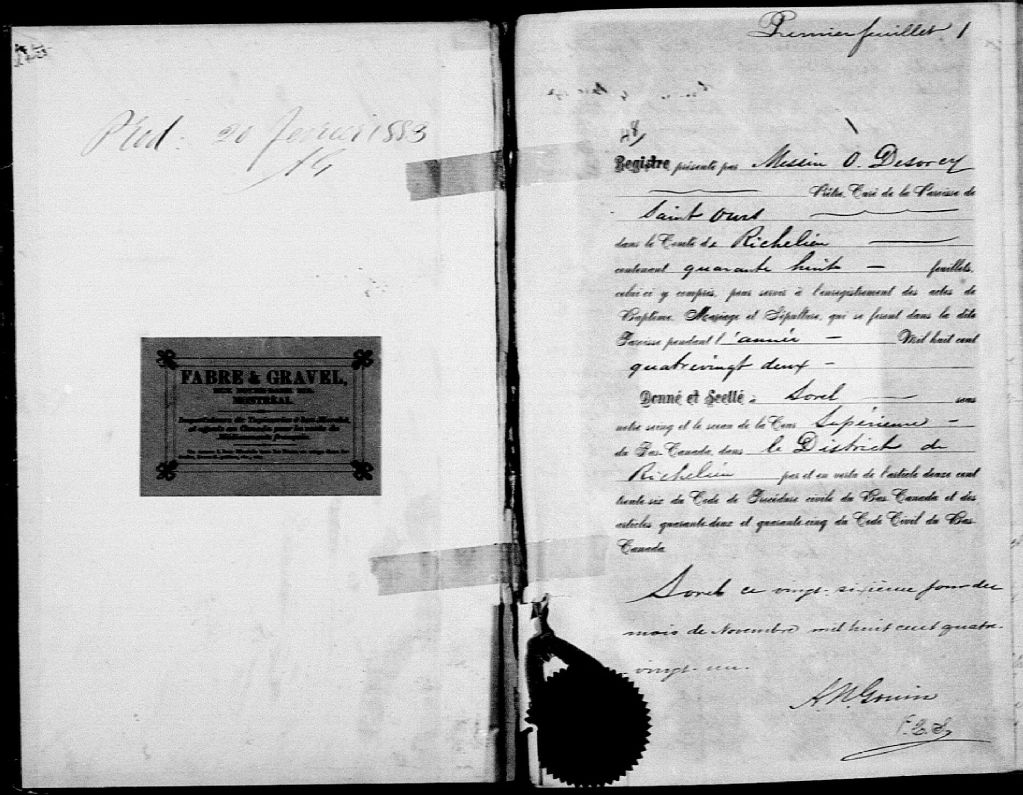 20 février 1883
FABRE & GRAVEL,
MONTRÉAL.
Premier feuillet 1
48
Registre présenté par Messire O. Desorcy
Prêtre, Curé de la Paroisse de
Saint Ours
dans le Comté de Richelieu
contenant quarante huit – feuillets,
celui-ci y compris, pour servir à l'enregistrement des actes de
Baptême, Mariage et Sépulture, qui se feront dans la dite
Paroisse pendant l'année – Mil huit cent
quatrevingt deux –
Donné et Scellé à Sorel – sous
notre seing et le sceau de la Cour Supérieure –
du Bas-Canada, dans le District de
Richelieu par et en vertu de l'article douze cent
trente-six du Code de Procédure civile du Bas Canada et des
articles quarante-deux et quarante-cinq du Code Civil du Bas-
Canada
Sorel ce vingt-sixième jour du
mois de Novembre mil huit cent quatre-
vingt-un.
A. N. Gouin
P.C.S.